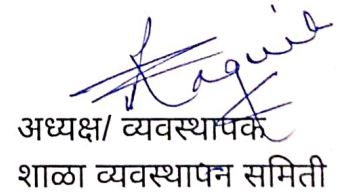 अध्यक्ष/ व्यवस्थापक
शाळा व्यवस्थापन समिती